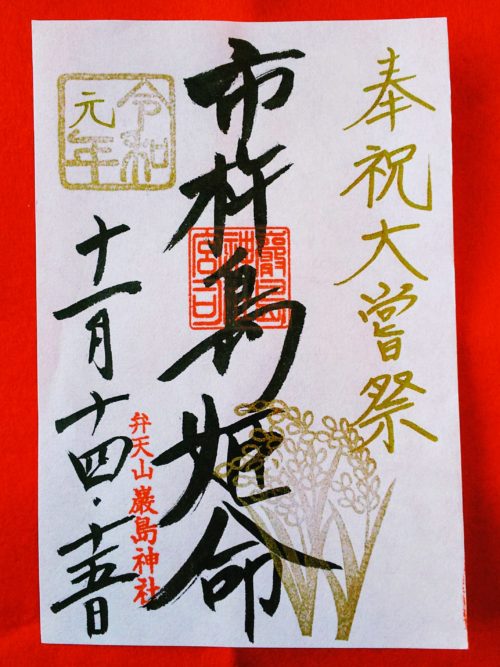 奉祝大嘗祭
市杵島姫命
巖島神社宮司
弁天山巌島神社
令和
元年
十一月十四・十五日